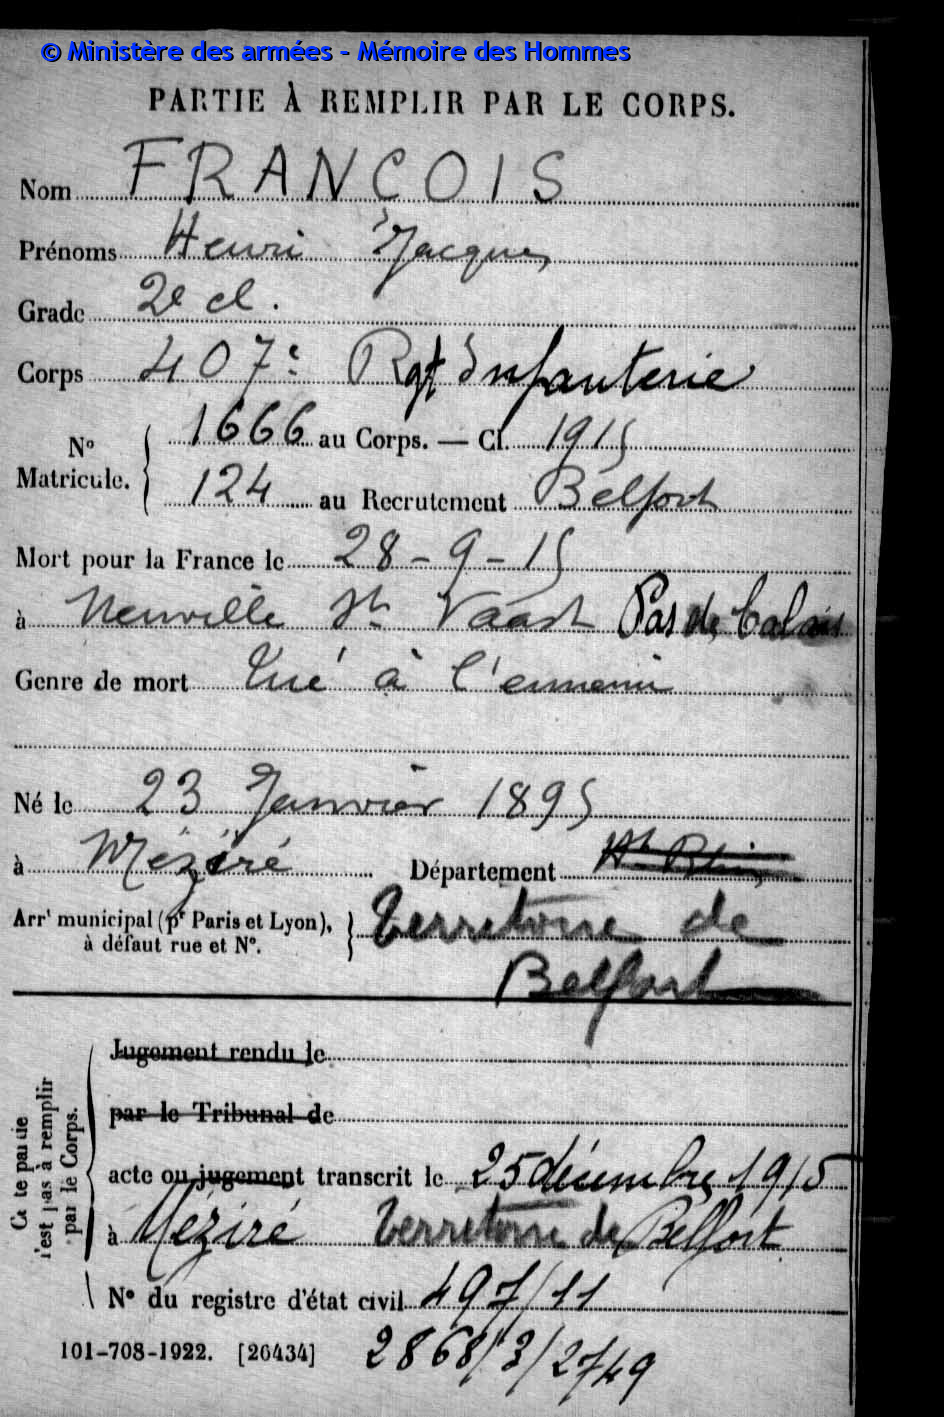 © Ministère des armées - Mémoire des Hommes
PARTIE À REMPLIR PAR LE CORPS.
Nom FRANCOIS
Prénoms Henri Jacques
Grade 2e cl.
Corps 407e Rgt d'Infanterie
No Matricule. 1666 au Corps. — Cl. 1915
124 au Recrutement Belfort
Mort pour la France le 28-9-15
à Neuville St Vaast Pas de Calais
Genre de mort Tué à l'ennemi
Né le 23 Janvier 1895
à Méziré Département Ht Rhin
Arrt municipal (pr Paris et Lyon), à défaut rue et No. Territoire de
Belfort
Jugement rendu le
par le Tribunal de
Cette partie n'est pas à remplir par le Corps.
acte ou jugement transcrit le 25 décembre 1915
à Méziré Territoire de Belfort
No du registre d'état civil 497/11
101-708-1922. [26434] 2868/3/2749